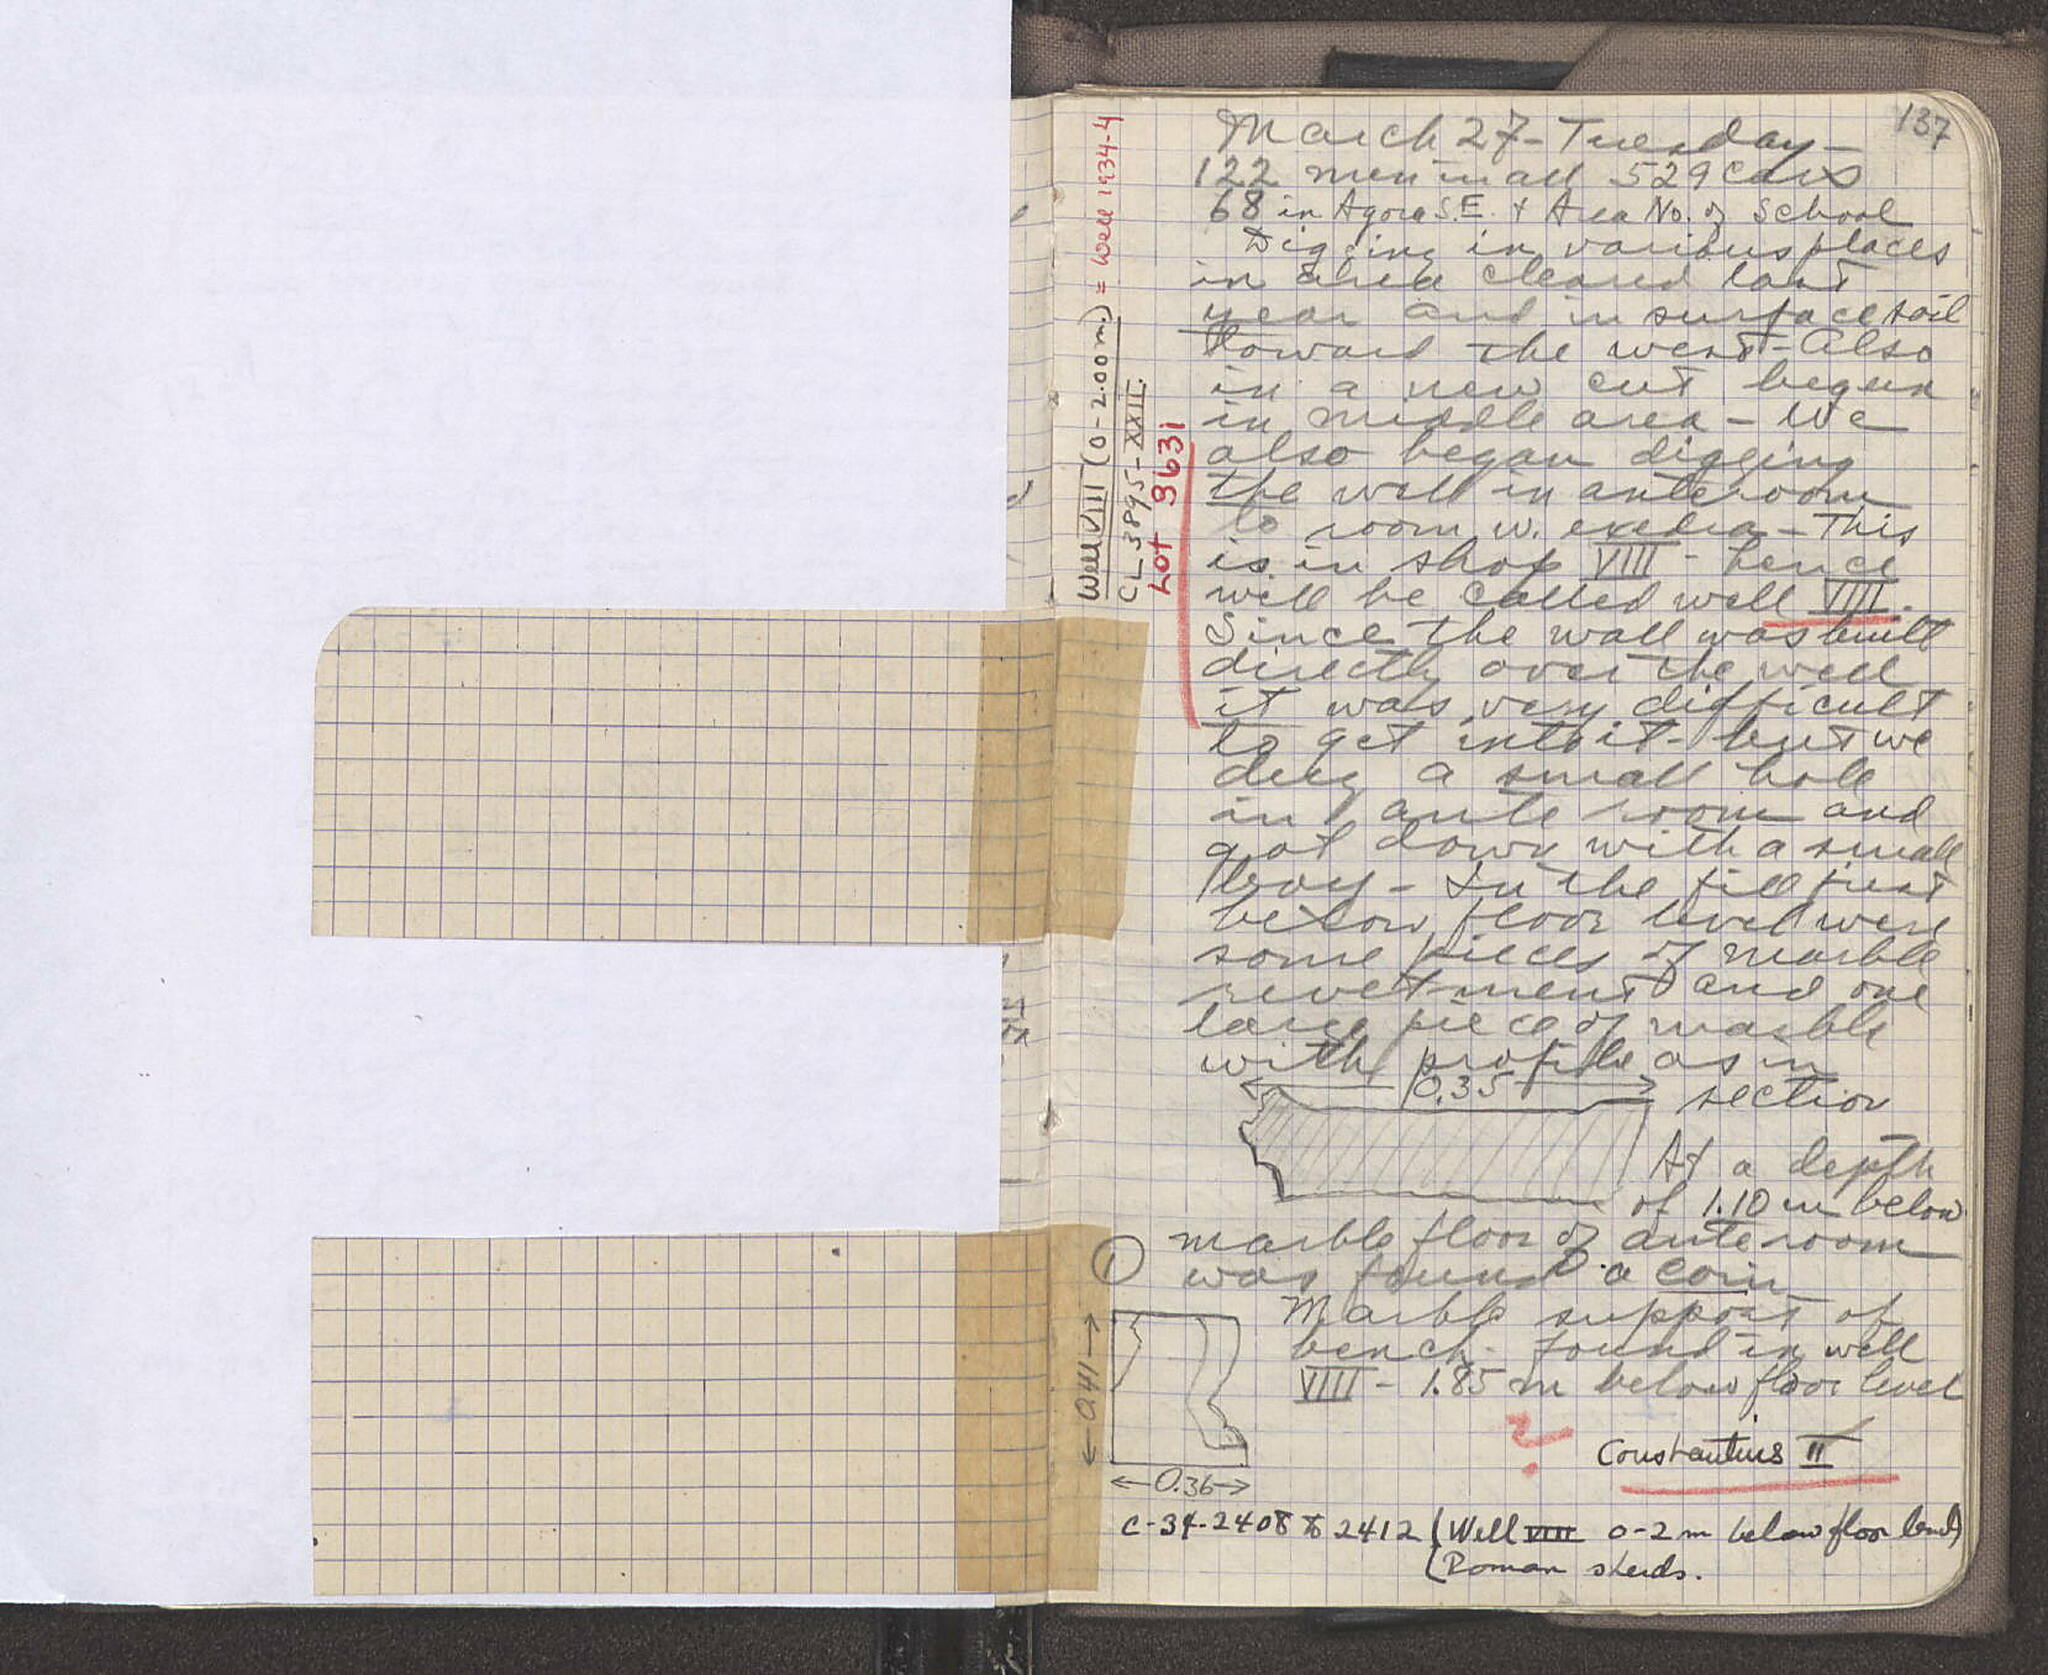 137
March 27 - Tuesday -
122 men in all 529 cars
68 in Agora S.E. + Area No. of School
Digging in various places
in area cleared last
year and in surface soil
toward the west - Also
in a new cut begun
in middle area - We
also began digging
the well in anteroom
to room w. exedra - This
is in shop VIII - hence
will be called well VIII.
Since the wall was built
directly over the well
it was very difficult
to get into it - but we
dug a small hole
in ante room and
got down with a small
boy - In the fill just
below floor level were
some pieces of marble
revetment and one
large piece of marble
with profile as in
section
0.35
At a depth
of 1.10 m below
marble floor of anteroom
① was found a coin
Marble support of
bench. Found in well
VIII - 1.85 m below floor level
0.41
0.36
?
Constantius II
C-34-2408 to 2412 (Well VIII 0-2 m below floor level)
(Roman sherds.
Well VIII (0-2.00 m.) = Well 1934-4
CL-3895-XXII.
Lot 3631